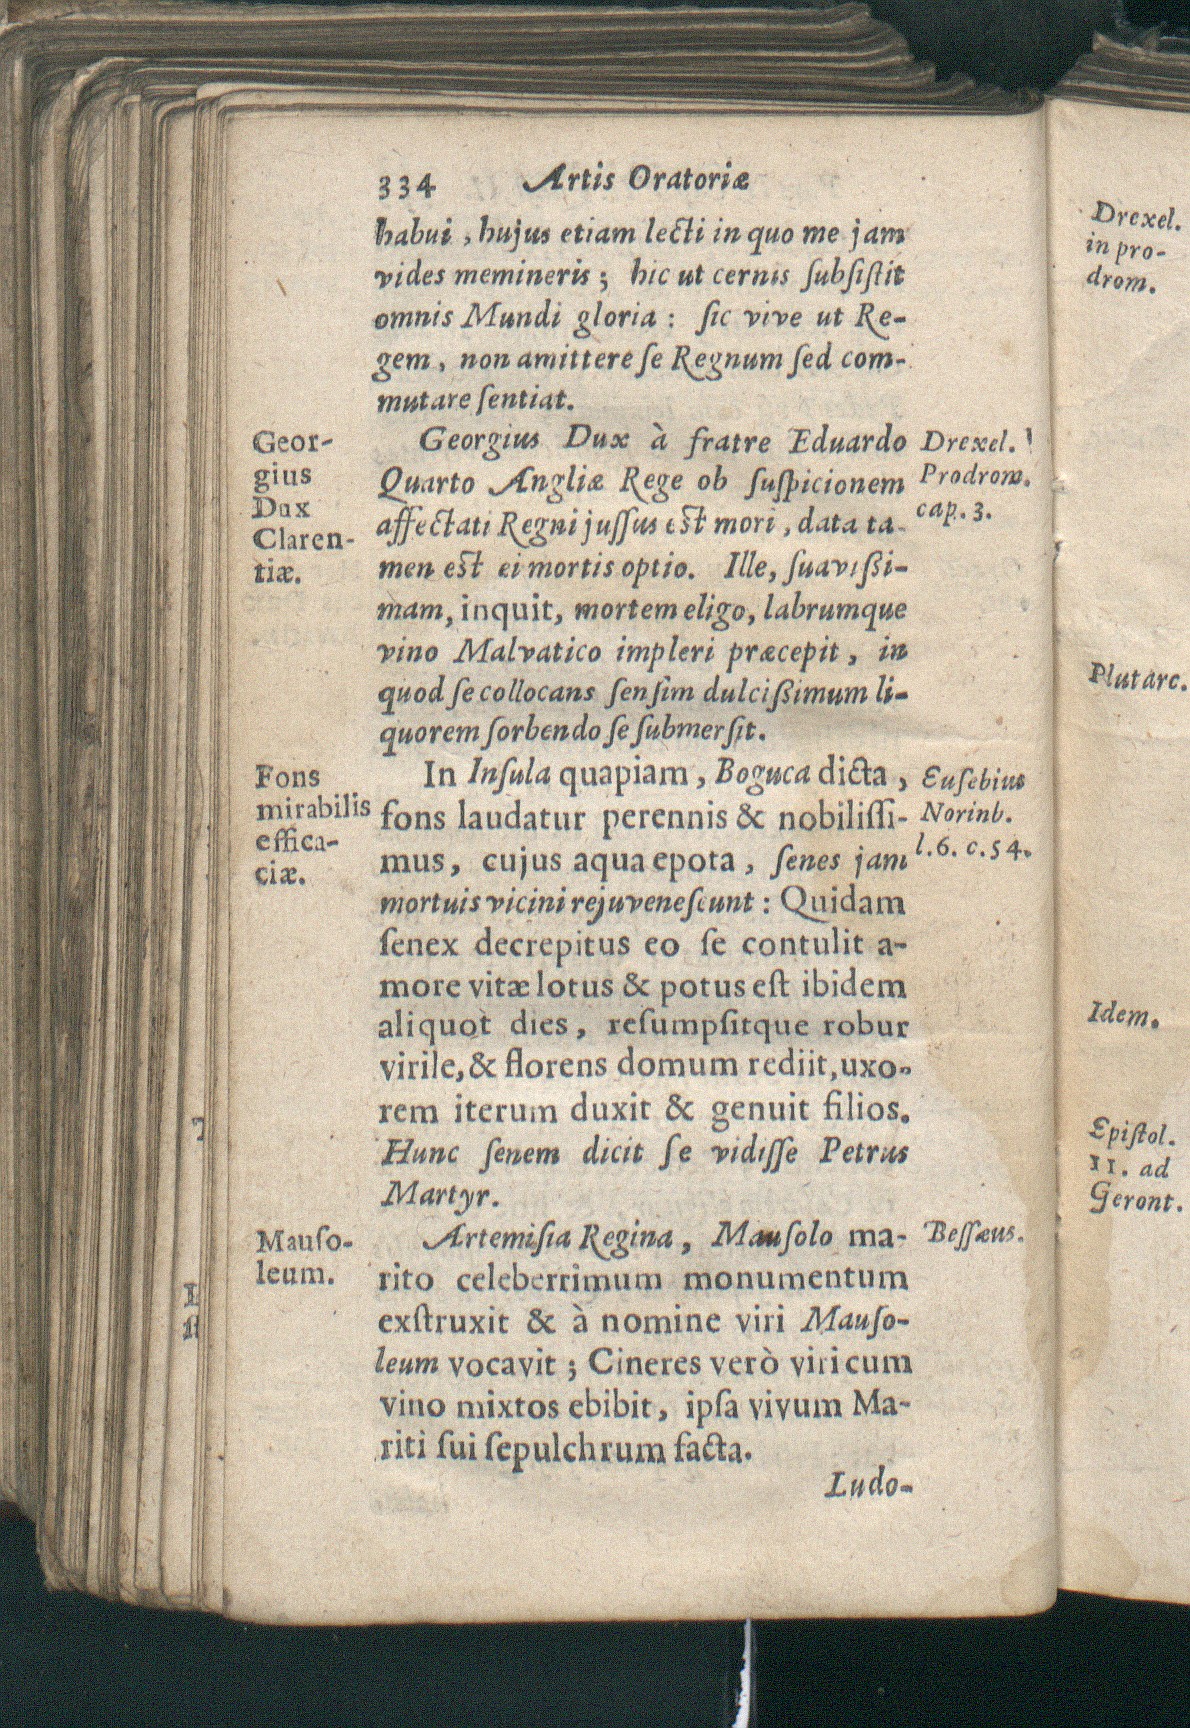 334 Artis Oratoriæ
habui, hujus etiam lecti in quo me jam
vides memineris; hic ut cernis ſubſiſtit
omnis Mundi gloria: ſic vive ut Re-
gem, non amittere ſe Regnum ſed com-
mutare ſentiat.
Geor-
gius
Dux
Claren-
tiæ.
Georgius Dux à fratre Eduardo
Quarto Angliæ Rege ob ſuſpicionem
affectati Regni juſſus eſt mori, data ta-
men eſt ei mortis optio. Ille, ſuaviſſi-
mam, inquit, mortem eligo, labrumque
vino Malvatico impleri præcepit, in
quod ſe collocans ſenſim dulciſſimum li-
quorem ſorbendo ſe ſubmerſit.
Drexel.
Prodrom.
cap. 3.
Fons
mirabilis
effica-
ciæ.
In Inſula quapiam, Boguca dicta,
fons laudatur perennis & nobiliſſi-
mus, cujus aqua epota, ſenes jam
mortuis vicini rejuveneſcunt: Quidam
ſenex decrepitus eo ſe contulit a-
more vitæ lotus & potus eſt ibidem
aliquot dies, reſumpſitque robur
virile, & florens domum rediit, uxo-
rem iterum duxit & genuit filios.
Hunc ſenem dicit ſe vidiſſe Petrus
Martyr.
Euſebius
Norinb.
l. 6. c. 54.
Mauſo-
leum.
Artemiſia Regina, Mauſolo ma-
rito celeberrimum monumentum
exſtruxit & à nomine viri Mauſo-
leum vocavit; Cineres verò viri cum
vino mixtos ebibit, ipſa vivum Ma-
riti ſui ſepulchrum facta.
Beſſæus.
Ludo-
Drexel.
in pro-
drom.
Plutarc.
Idem.
Epiſtol.
11. ad
Geront.